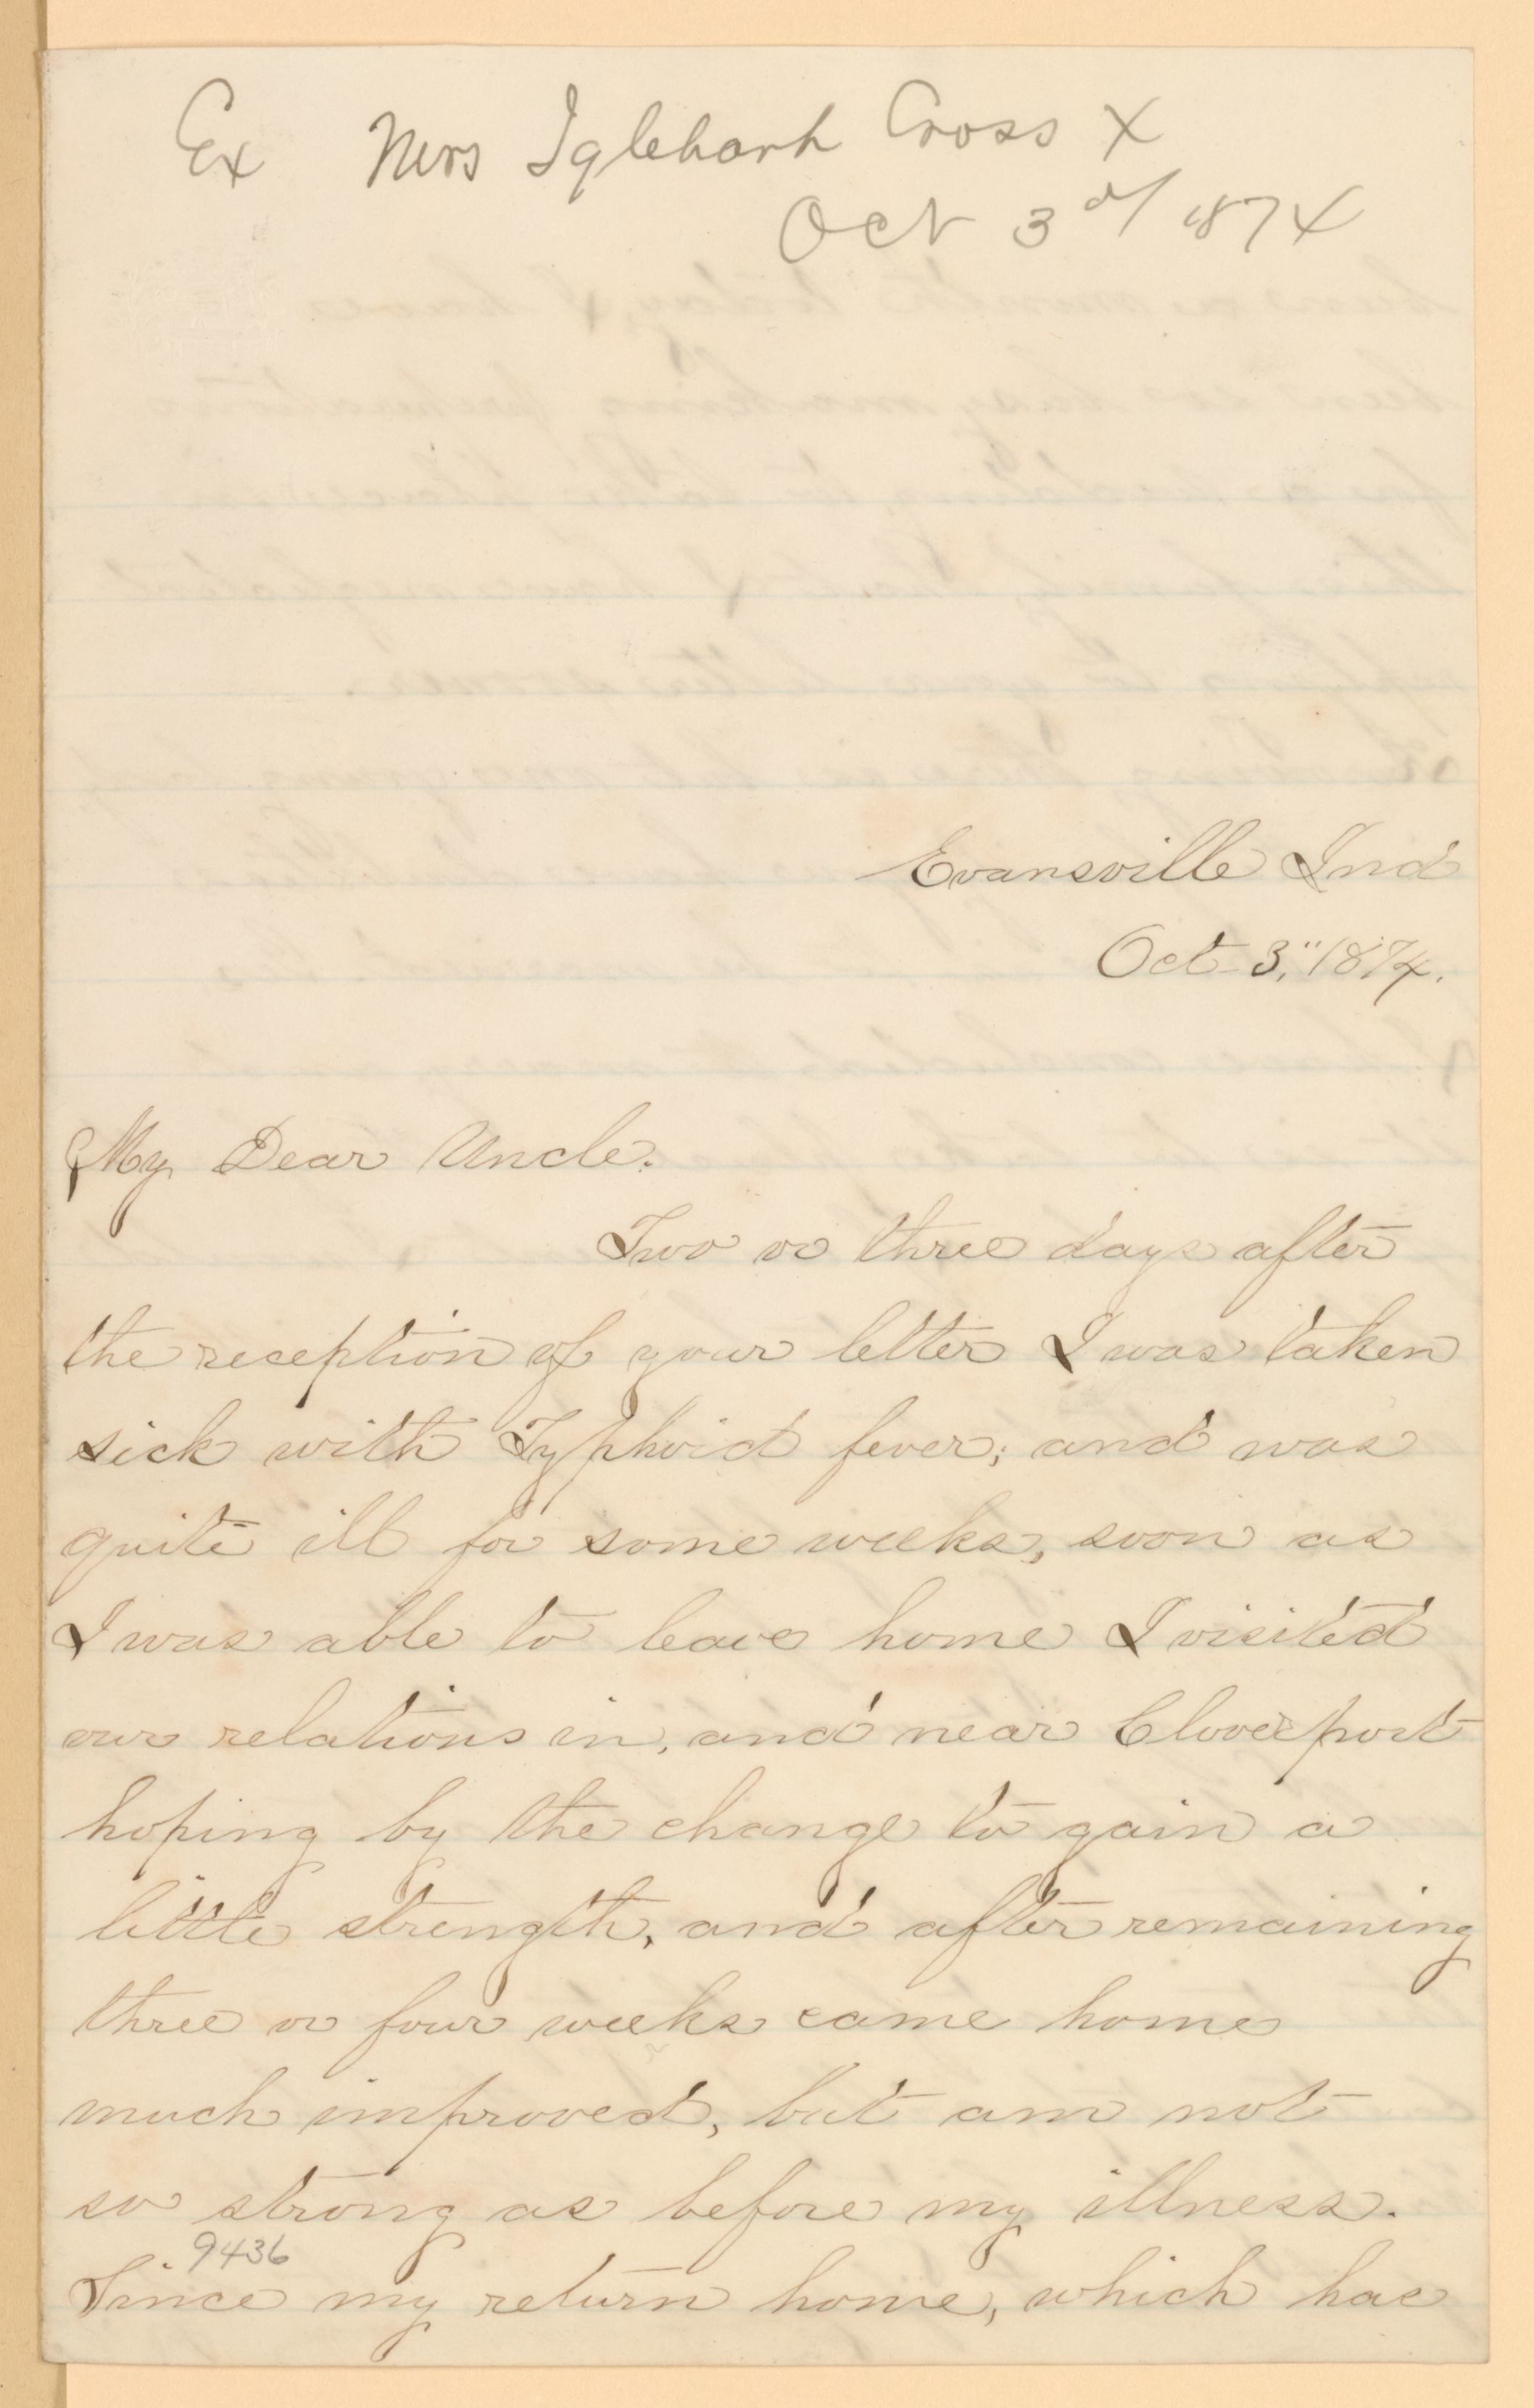 Ex Mrs Iglehart Cross X
Oct 3d/1874
Evansville Ind
Oct 3," 1874.
My Dear Uncle.
Two or three days after
the reception of your letter I was taken
sick with Typhoid fever; and was
quite ill for some weeks, soon as
I was able to leave home I visited
our relations in, and near Cloverport
hoping by the change to gain a
little strength, and after remaining
three or four weeks came home
much improved, but am not
so strong as before my illness.
9436
Since my return home, which has